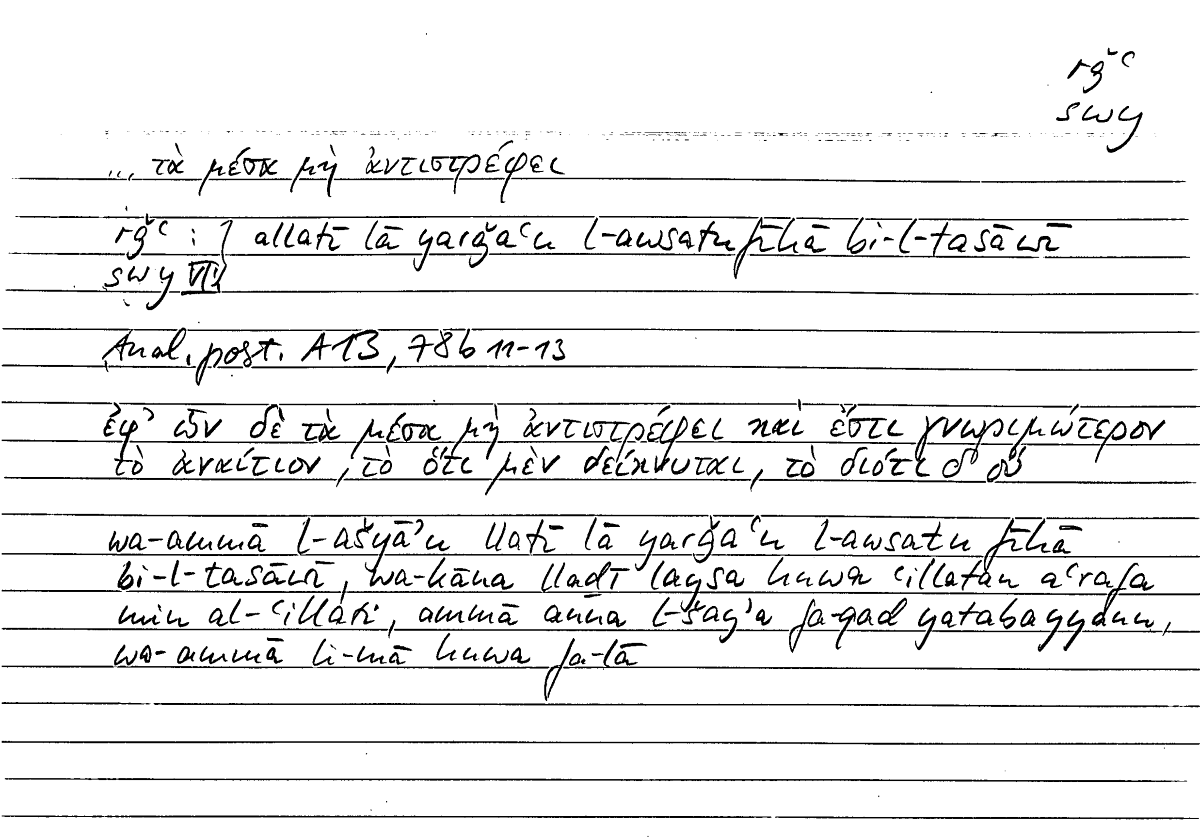 rǧʿ
swy
... τὰ μέσα μὴ ἀντιστρέφει
rǧʿ : } allatī lā yarǧaʿu l-awsatu fīhā bi-l-tasāwī
swy VI
Anal. post. A13, 78b 11-13
ἐφ' ὧν δὲ τὰ μέσα μὴ ἀντιστρέφει καὶ ἔστι γνωριμώτερον
τὸ ἀναίτιον, τὸ ὅτι μὲν δείκνυται, τὸ διότι δ' οὔ
wa-ammā l-ašyāʾu llatī lā yarǧaʿu l-awsatu fīhā
bi-l-tasāwī, wa-kāna lladī laysa huwa ʿillatan aʿrafa
min al-ʿillati, ammā anna l-šayʾa fa-qad yatabayyanu,
wa-ammā li-mā huwa fa-lā